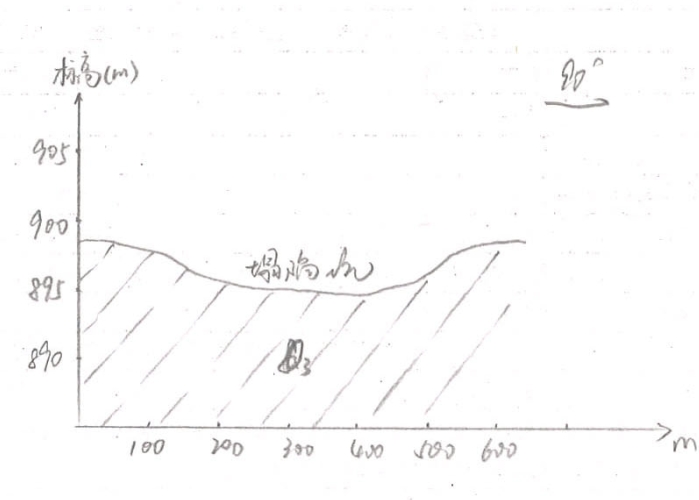 标高(m)
90°
905
900
895
890
塌陷
Q₃
100 200 300 400 500 600 m